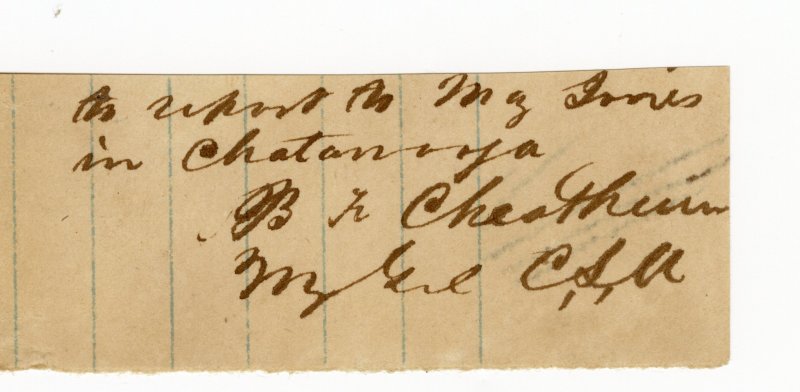 to report to Mj Jones
in Chatanooga
B F Cheatham
Mj Genl C,S,A